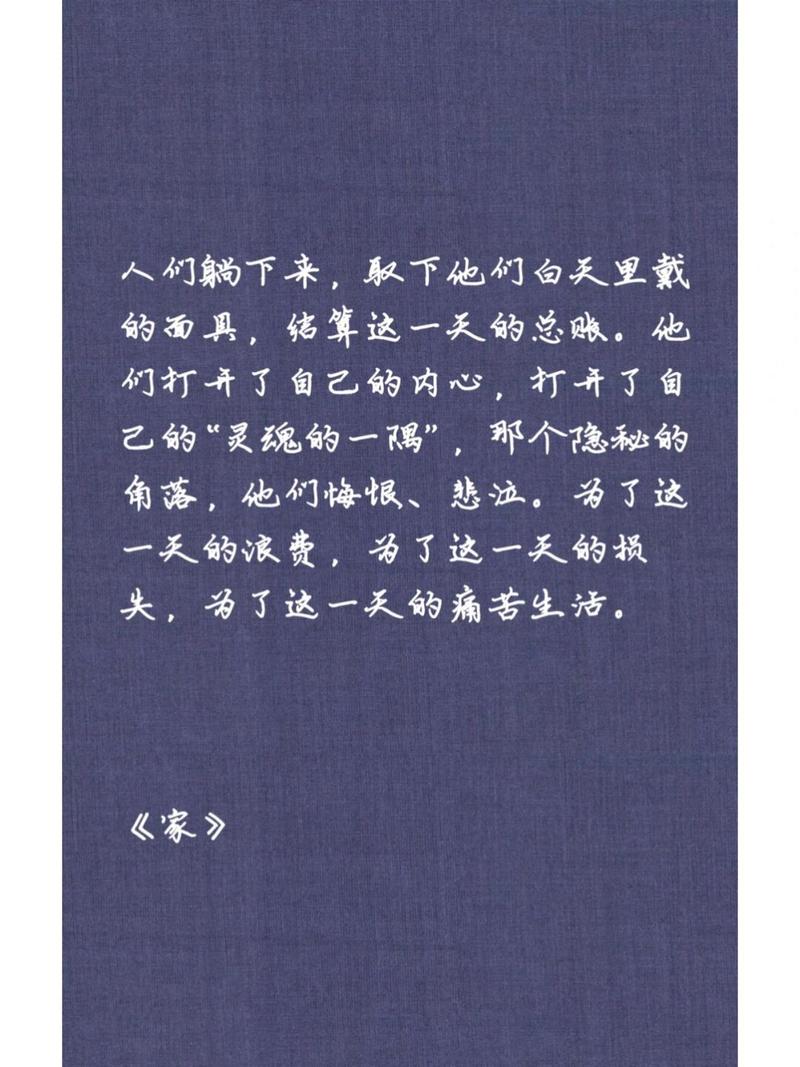 人们躺下来，取下他们白天里戴
的面具，结算这一天的总账。他
们打开了自己的内心，打开了自
己的“灵魂的一隅”，那个隐秘的
角落，他们悔恨、悲泣。为了这
一天的浪费，为了这一天的损
失，为了这一天的痛苦生活。
《家》